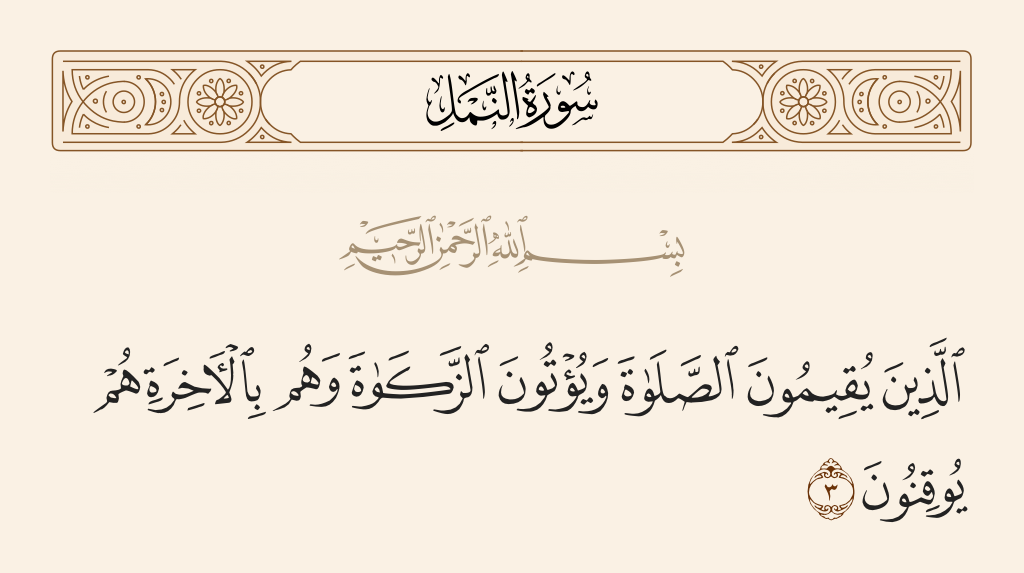 سُورَةُ النَّمْلِ
بِسْمِ ٱللَّهِ ٱلرَّحْمَٰنِ ٱلرَّحِيمِ
ٱلَّذِينَ يُقِيمُونَ ٱلصَّلَوٰةَ وَيُؤْتُونَ ٱلزَّكَوٰةَ وَهُم بِٱلْـَٔاخِرَةِ هُمْ
يُوقِنُونَ ٣